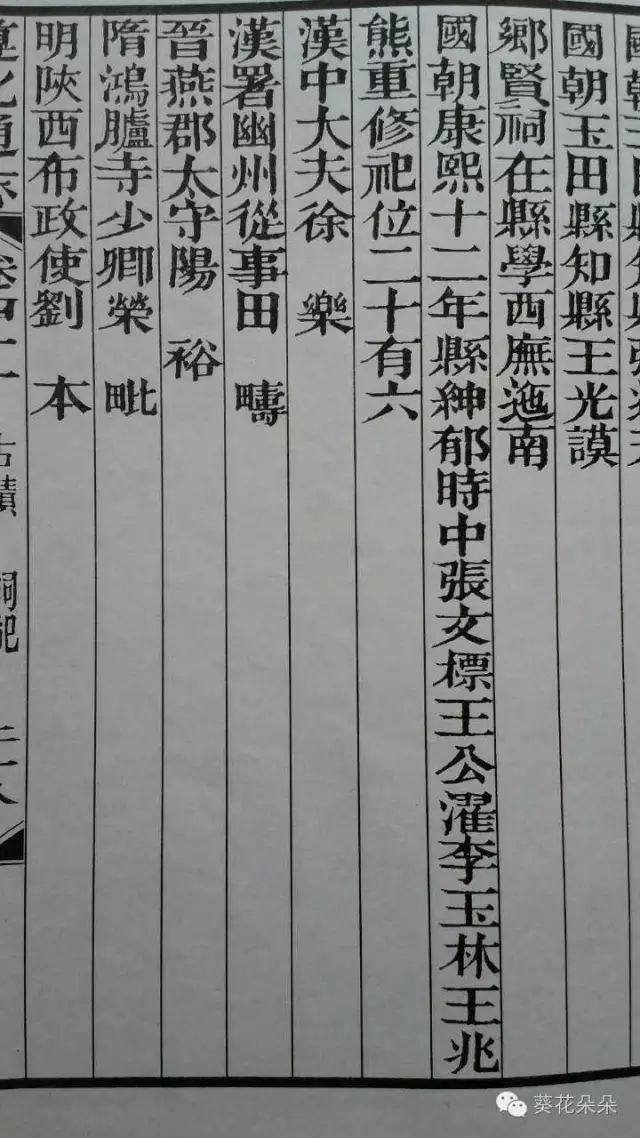 國朝玉田縣知縣王光謨
鄉賢祠在縣學西廡迤南
國朝康熙十二年縣紳郁時中張文標王公濯李玉林王兆
熊重修祀位二十有六
漢中大夫徐 樂
漢署幽州從事田 疇
晉燕郡太守陽 裕
隋鴻臚寺少卿榮 毗
明陝西布政使劉 本
葵花朵朵